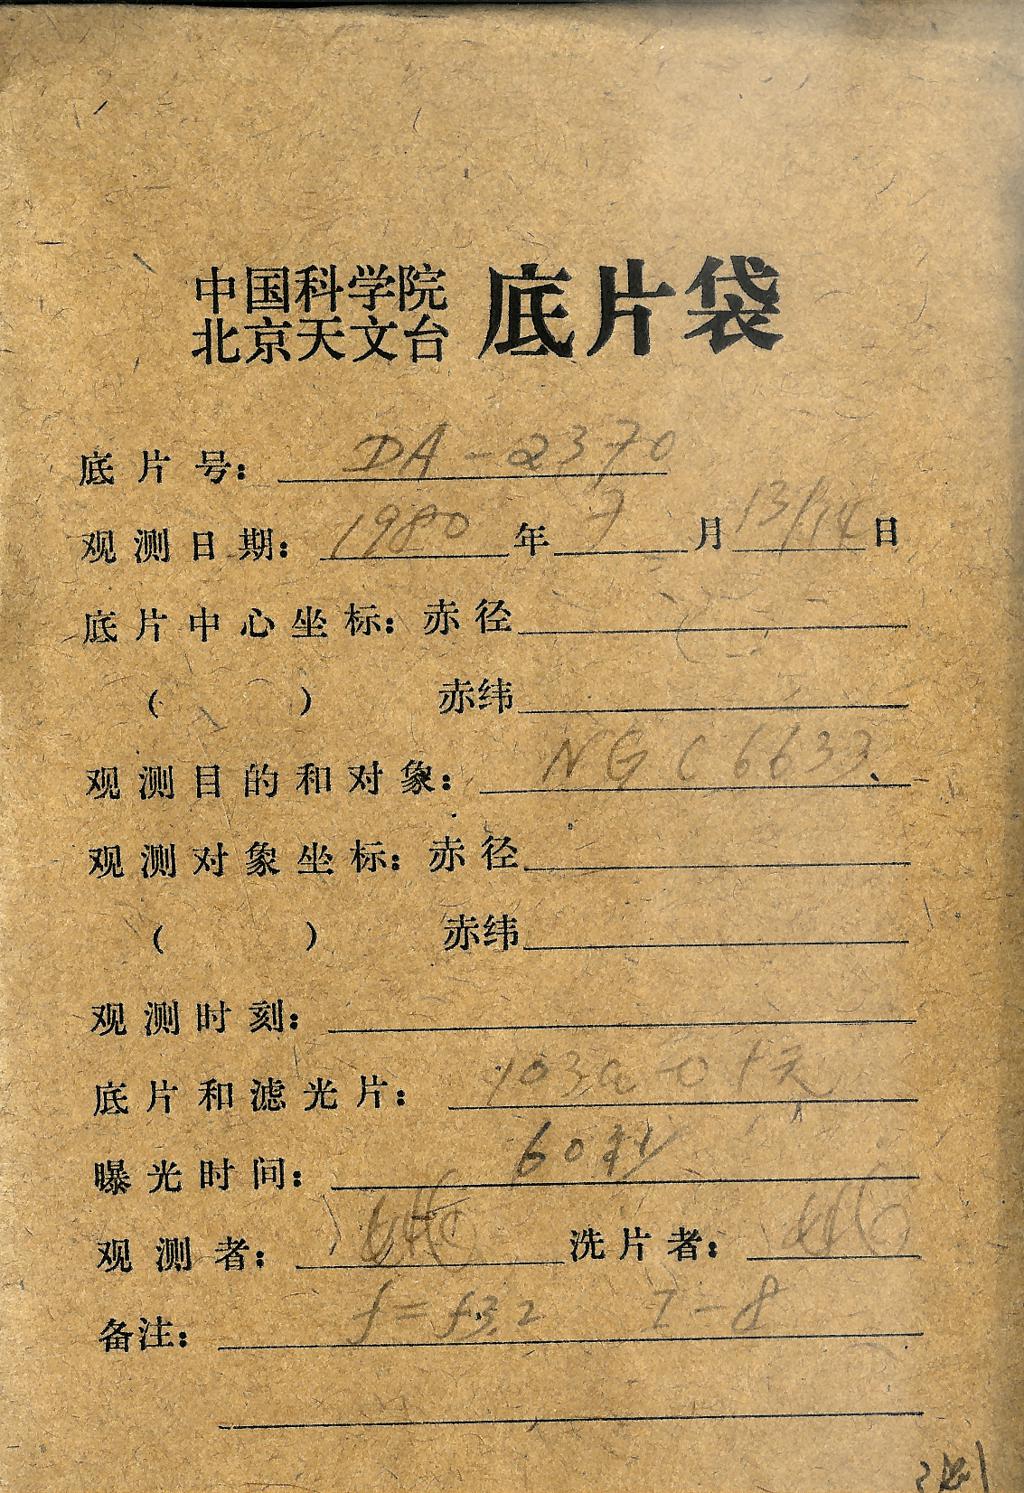 中国科学院
北京天文台 底片袋
底片号： DA-2370
观测日期： 1980 年 7 月 13/14 日
底片中心坐标：赤径
（ ） 赤纬
观测目的和对象： NGC 6633
观测对象坐标：赤径
（ ） 赤纬
观测时刻：
底片和滤光片： 103a-O+无
曝光时间： 60秒
观测者： 洗片者：
备注： f=f3.2 I-8